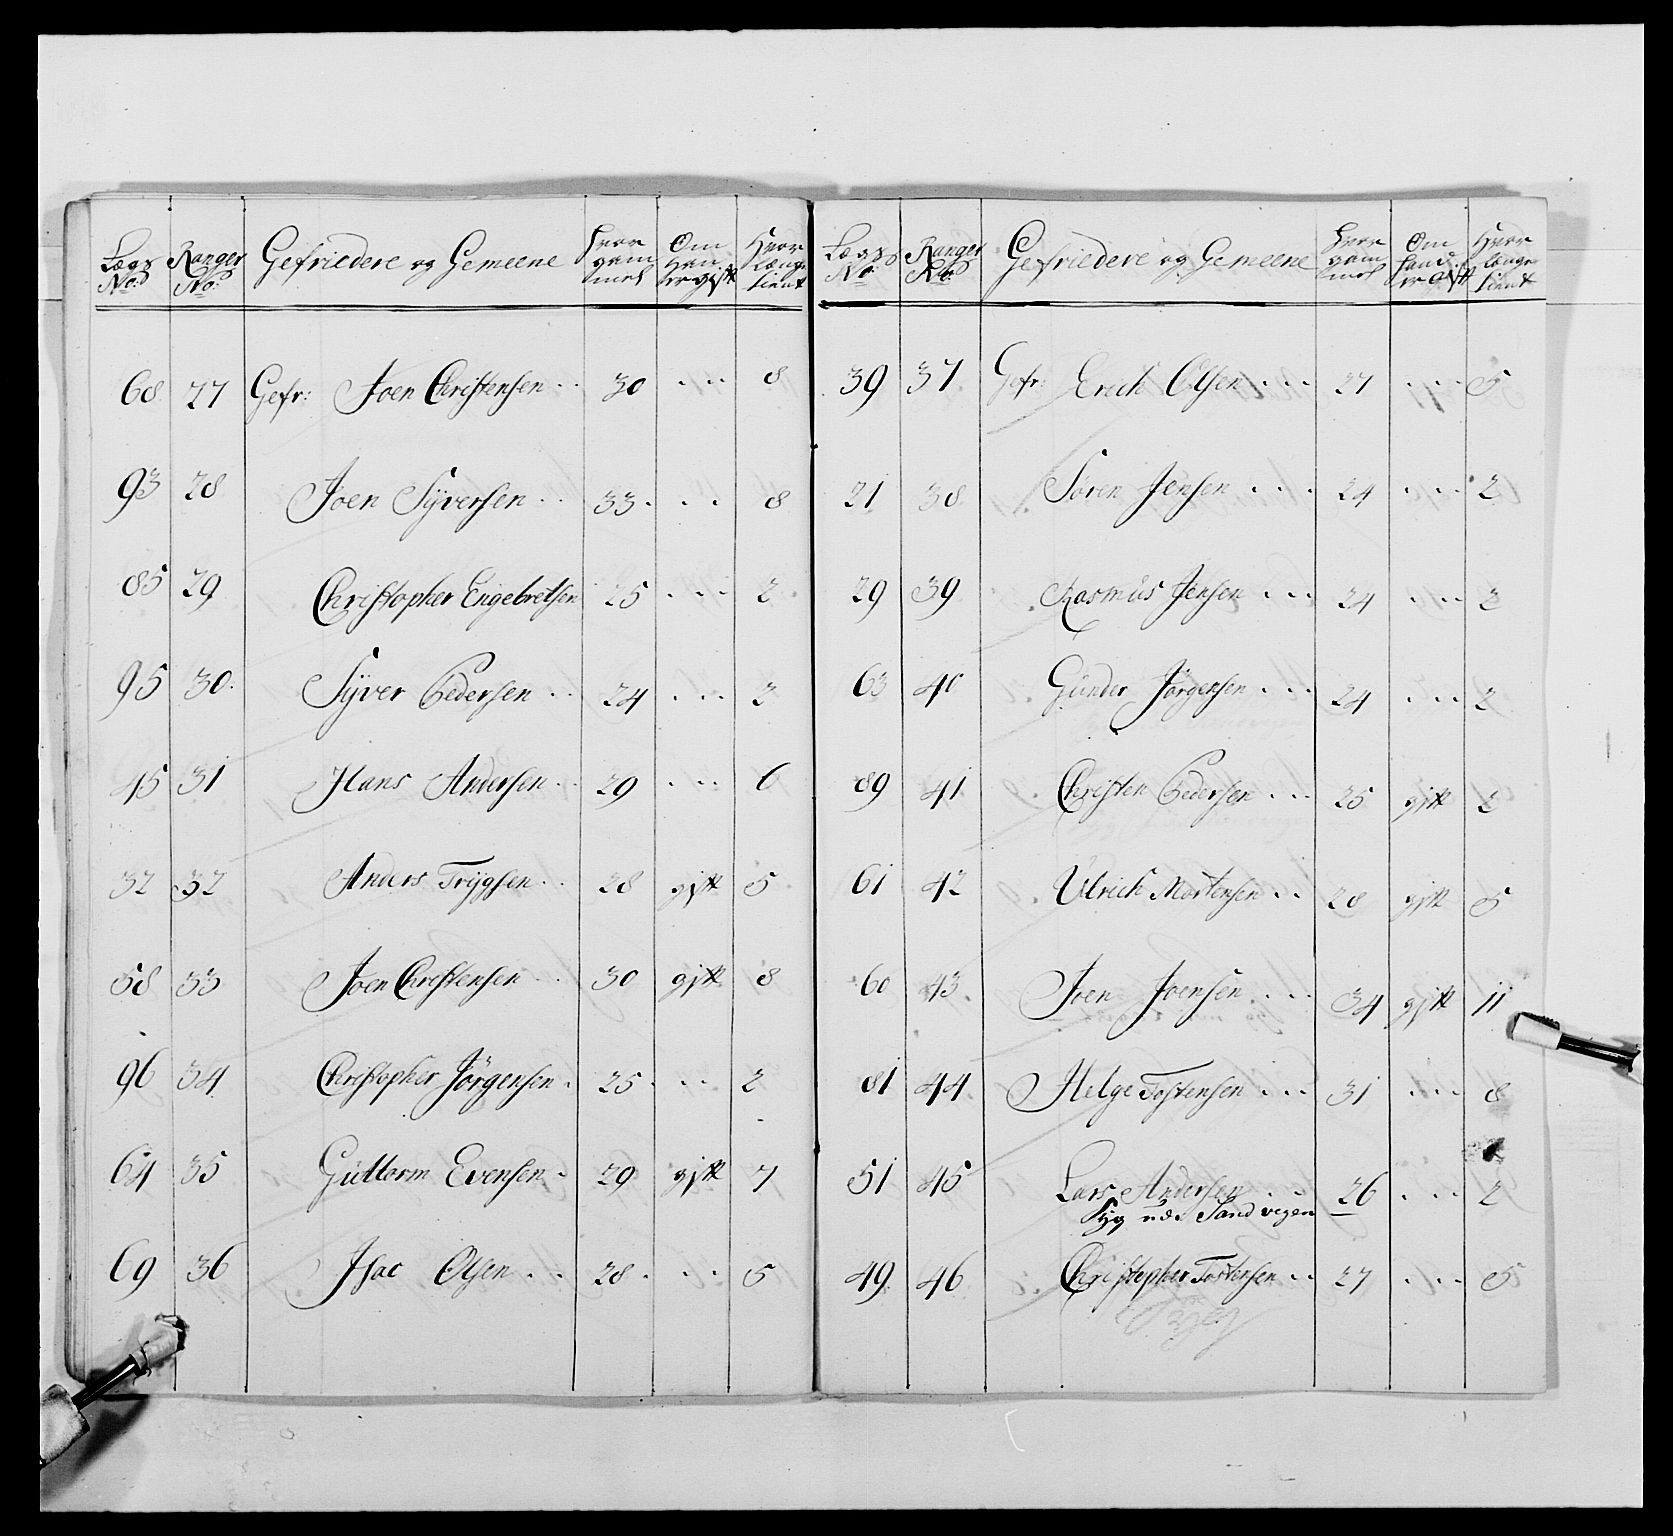 Lægs No: Ranger No: Gefriedere og Gemeene Hvor gam mel Om Han er gift Hvor længe tient
68 27 Gefr: Joen Christensen .. 30 ... 8
93 28 Joen Syversen .. 33. ... 8
85 29 Christopher Engebretsen 25 ... 2
95 30. Syver Pedersen .. 24 ... 2
45 31 Hans Andersen .. 29 ... 6
32 32 Anders Trygsen .. 28 gift 5
58 33 Joen Christensen .. 30 gift 8
96 34 Christopher Jörgensen . 25 ... 2
64 35 Guttorm Evensen . 29 gift 7
69 36 Isac Olsen .. 28 ... 5
Lægs No: Ranger No: Gefriedere og Gemeene Hvor gam mel Om Hand er gift Hvor længe tient
39 37 Gefr: Erich Olsen ... 27 ... 5
21 38 Sören Jensen ... 24 ... 2
29 39 Rasmus Jensen ... 24 ... 2
63 40 Gunder Jörgensen ... 24 ... 2
89 41 Christen Pedersen ... 25 gift 2
61 42 Ulrich Mortensen .. 28 gift 5
60 43 Joen Joensen ... 34 gift 11
81 44 Helge Tostensen ... 31 ... 8
51 45 Lars Andersen 26 ... 2
Syg ud. Sandvigen
49 46 Christopher Tostensen .. 27 ... 5